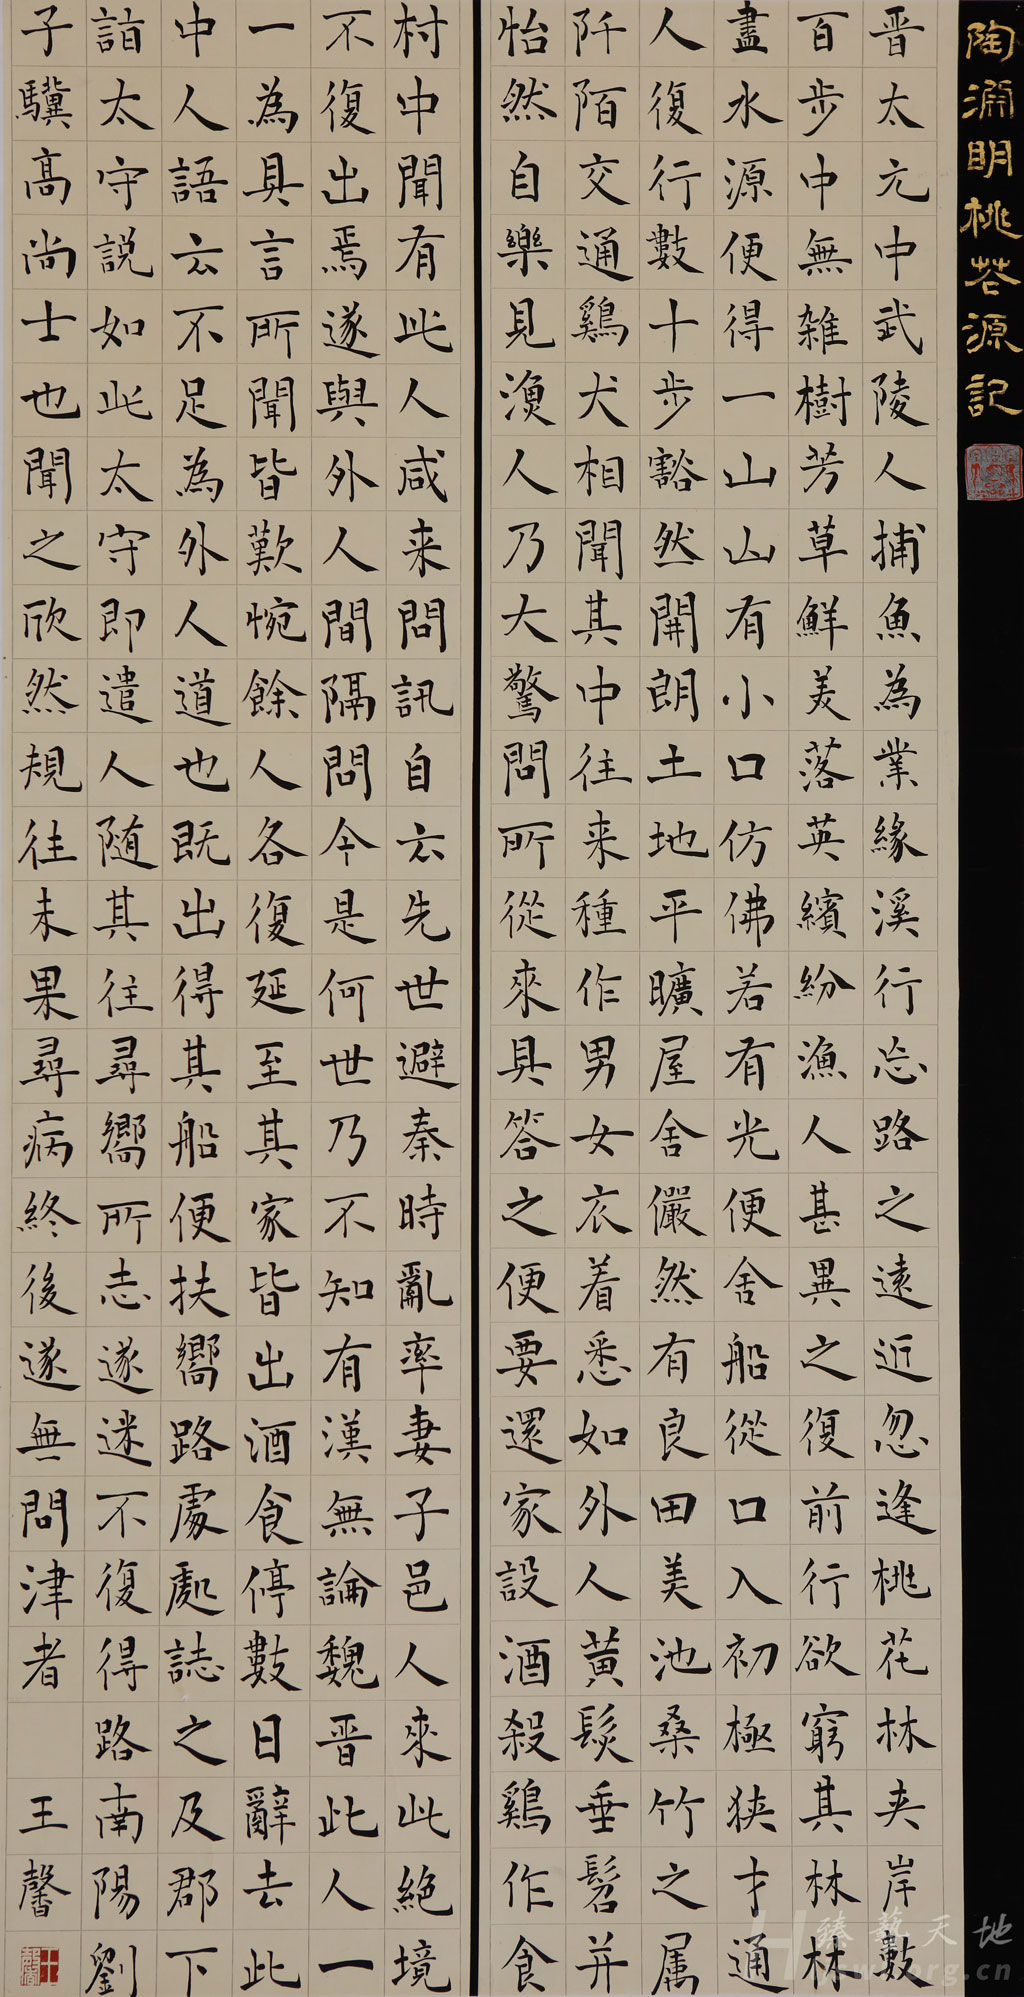 陶渊明桃花源記
晋太元中武陵人捕魚為業緣溪行忘路之遠近忽逢桃花林夹岸數
百步中無雑樹芳草鮮美落英繽紛漁人甚異之復前行欲窮其林林
盡水源便得一山山有小口仿佛若有光便舍船從口入初極狭才通
人復行數十步豁然開朗土地平曠屋舍儼然有良田美池桑竹之属
阡陌交通鷄犬相聞其中往来種作男女衣着悉如外人黄髮垂髫并
怡然自樂見漁人乃大驚問所從來具答之便要還家設酒殺鷄作食
村中聞有此人咸来問訊自云先世避秦時亂率妻子邑人來此絶境
不復出焉遂與外人間隔問今是何世乃不知有漢無論魏晋此人一
一為具言所聞皆歎惋餘人各復延至其家皆出酒食停數日辭去此
中人語云不足為外人道也既出得其船便扶嚮路處處誌之及郡下
詣太守説如此太守即遣人随其往尋嚮所志遂迷不復得路南陽劉
子驥高尚士也聞之欣然規往未果尋病終後遂無問津者 王馨
臻藝天地